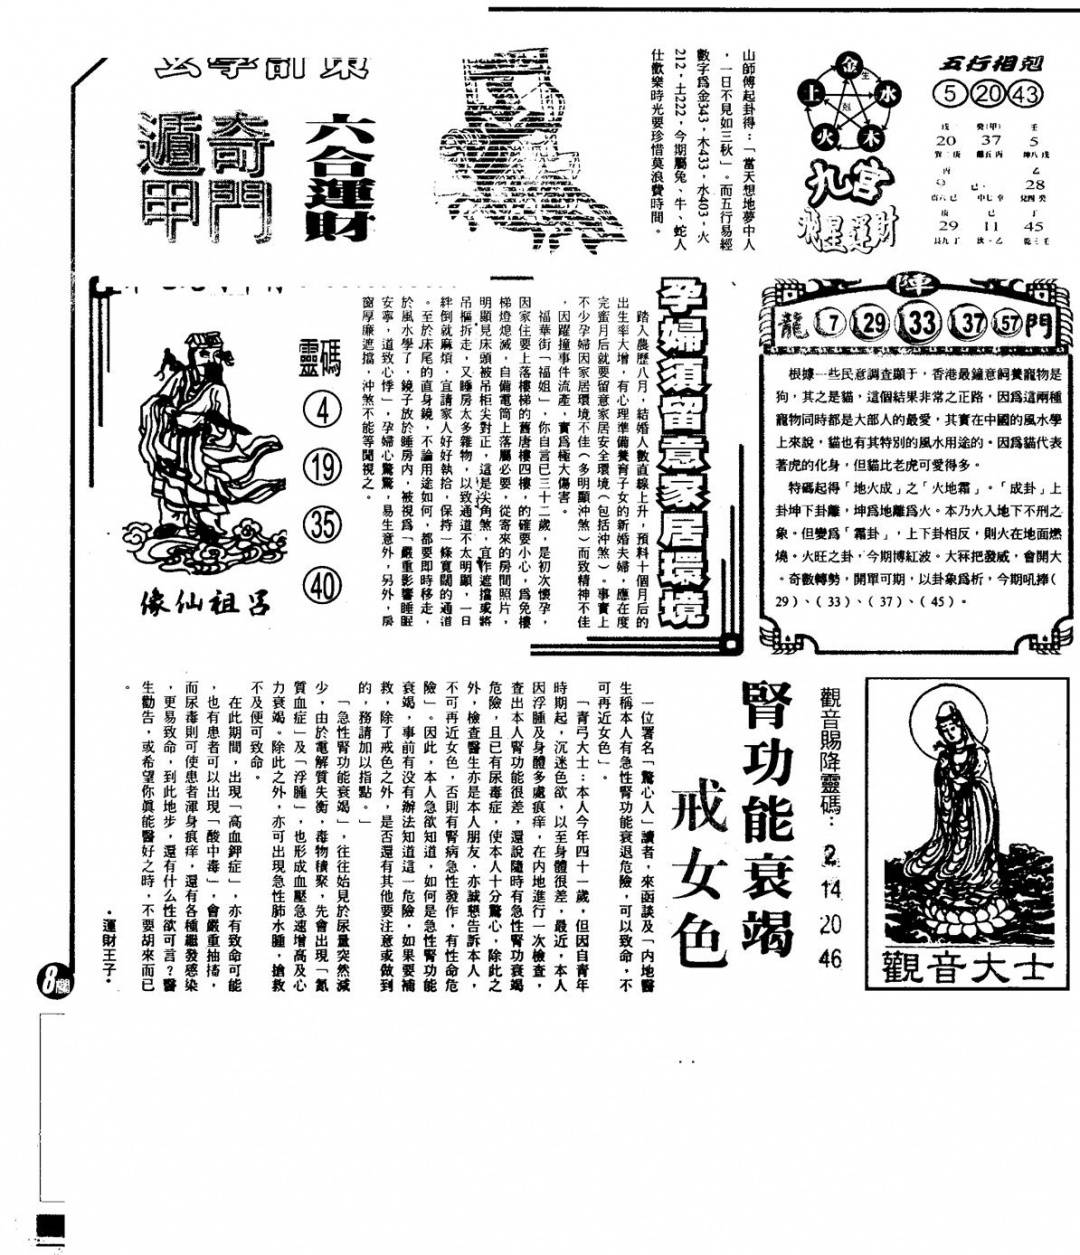 玄學計策
奇門
遁甲
六合運財
山師傅起卦得：「當天想地夢中人
，一日不見如三秋」。而五行易經
數字爲金343，木433，水403，火
212，土222，今期屬兔、牛、蛇人
仕歡樂時光要珍惜莫浪費時間。
金
水
木
火
土
生
剋
九宮
飛星運財
五行相剋
5 20 43
戊 癸(甲) 壬
20 37 5
丙 乙
28
庚 己 丁
29 11 45
孕婦須留意家居環境
踏入農歷八月，結婚人數直線上升，預料十個月后的
出生率大增，有心理準備養育子女的新婚夫婦，應在度
完蜜月后就要留意家居安全環境（包括沖煞）。事實上
不少孕婦因家居環境不佳（多明顯沖煞）而致精神不佳
，因躍撞事件流產，實爲極大傷害。
福華街「福姐」，你自言已三十二歲，是初次懷孕，
因家住要上落樓梯的舊唐樓四樓，的確要小心，爲免樓
梯燈熄滅，自備電筒上落屬必要，從寄來的房間照片，
明顯見床頭被吊柜尖對正，這是尖角煞，宜作遮擋或將
吊柜拆走，又睡房太多雜物，以致通道不太明顯，一日
絆倒就麻煩，宜請家人好好執拾，保持一條寬闊的通道
。至於床尾的直身鏡，不論用途如何，都要即時移走，
於風水學了，鏡子放於睡房内，被視爲「嚴重影響睡眠
安寧，道致心悸」，孕婦心驚驚，易生意外，另外，房
窗厚廉遮擋，沖煞不能等閒視之。
靈碼
4
19
35
40
呂祖仙像
陣
龍 7 29 33 37 57 門
根據一些民意調查顯于，香港最鐘意飼養寵物是
狗，其之是貓，這個結果非常之正路，因爲這兩種
寵物同時都是大部人的最愛，其實在中國的風水學
上來說，貓也有其特別的風水用途的。因爲貓代表
著虎的化身，但貓比老虎可愛得多。
特碼起得「地火成」之「火地霜」。「成卦」上
卦坤下卦離，坤爲地離爲火。本乃火入地下不刑之
象。但變爲「霜卦」，上下卦相反，則火在地面燃
燒。火旺之卦，今期博紅波。大冧把發威，會開大
。奇數轉勢，開單可期，以卦象爲析，今期吼捧（
29）、（33）、（37）、（45）。
觀音大士
觀音賜降靈碼：2 14 20 46
腎功能衰竭
戒女色
一位署名「驚心人」讀者，來函談及「内地醫
生稱本人有急性腎功能衰退危險，可以致命，不
可再近女色」。
「青弓大士：本人今年四十一歲，但因自青年
時期起，沉迷色欲，以至身體很差，最近，本人
因浮腫及身體多處痕痒，在内地進行一次檢查，
查出本人腎功能很差，還說隨時有急性腎功衰竭
危險，且已有尿毒症，使本人十分驚心，除此之
外，檢查醫生亦是本人朋友，亦誠懇告訴本人，
不可再近女色，否則有腎病急性發作，有性命危
險」。因此，本人急欲知道，如何是急性腎功能
衰竭，事前有没有辦法知道這一危險，如果要補
救，除了戒色之外，是否還有其他要注意或做到
的，務請加以指點。」
「急性腎功能衰竭」，往往始見於尿量突然減
少，由於電解質失衡，毒物積聚，先會出現「氮
質血症」及「浮腫」，也形成血壓急速增高及心
力衰竭。除此之外，亦可出現急性肺水腫，搶救
不及便可致命。
在此期間，出現「高血鉀症」，亦有致命可能
，也有患者可以出現「酸中毒」，會嚴重抽搐，
而尿毒則可使患者渾身痕痒，還有各種繼發感染
，更易致命，到此地步，還有什么性欲可言？醫
生勸告，或希望你眞能醫好之時，不要胡來而已
。
·運財王子·
8版